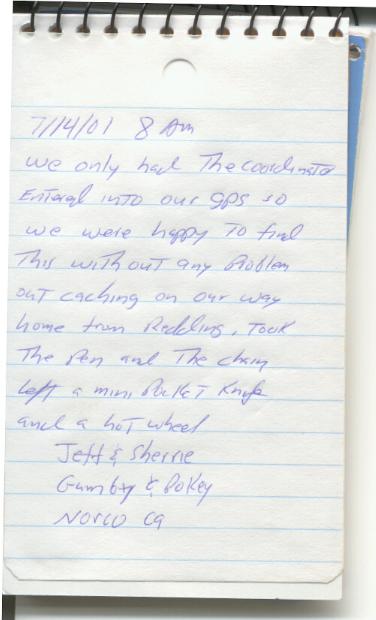 7/14/01 8 Am
we only had The coordinates
Entered into our gps so
we were happy To find
This without any Problem
out caching on our way
home from Redding. Took
The Pen and The chain
Left a mini Pocket Knife
and a hot wheel
Jeff & Sherrie
Gumby & Pokey
Norco ca